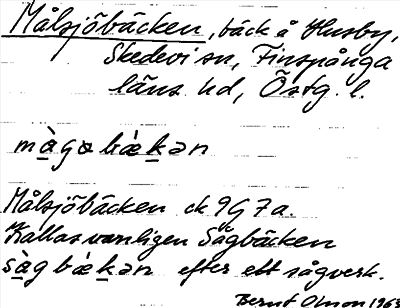 Målsjöbäcken, bäck å Husby,
Skedevi sn, Finspånga
läns hd, Östg. l.
màgobæ̀kən
Målsjöbäcken ek 9G 7a.
Kallas vanligen Sågbäcken
sàgbæ̀kən efter ett sågverk.
Bernt Olsson 1963